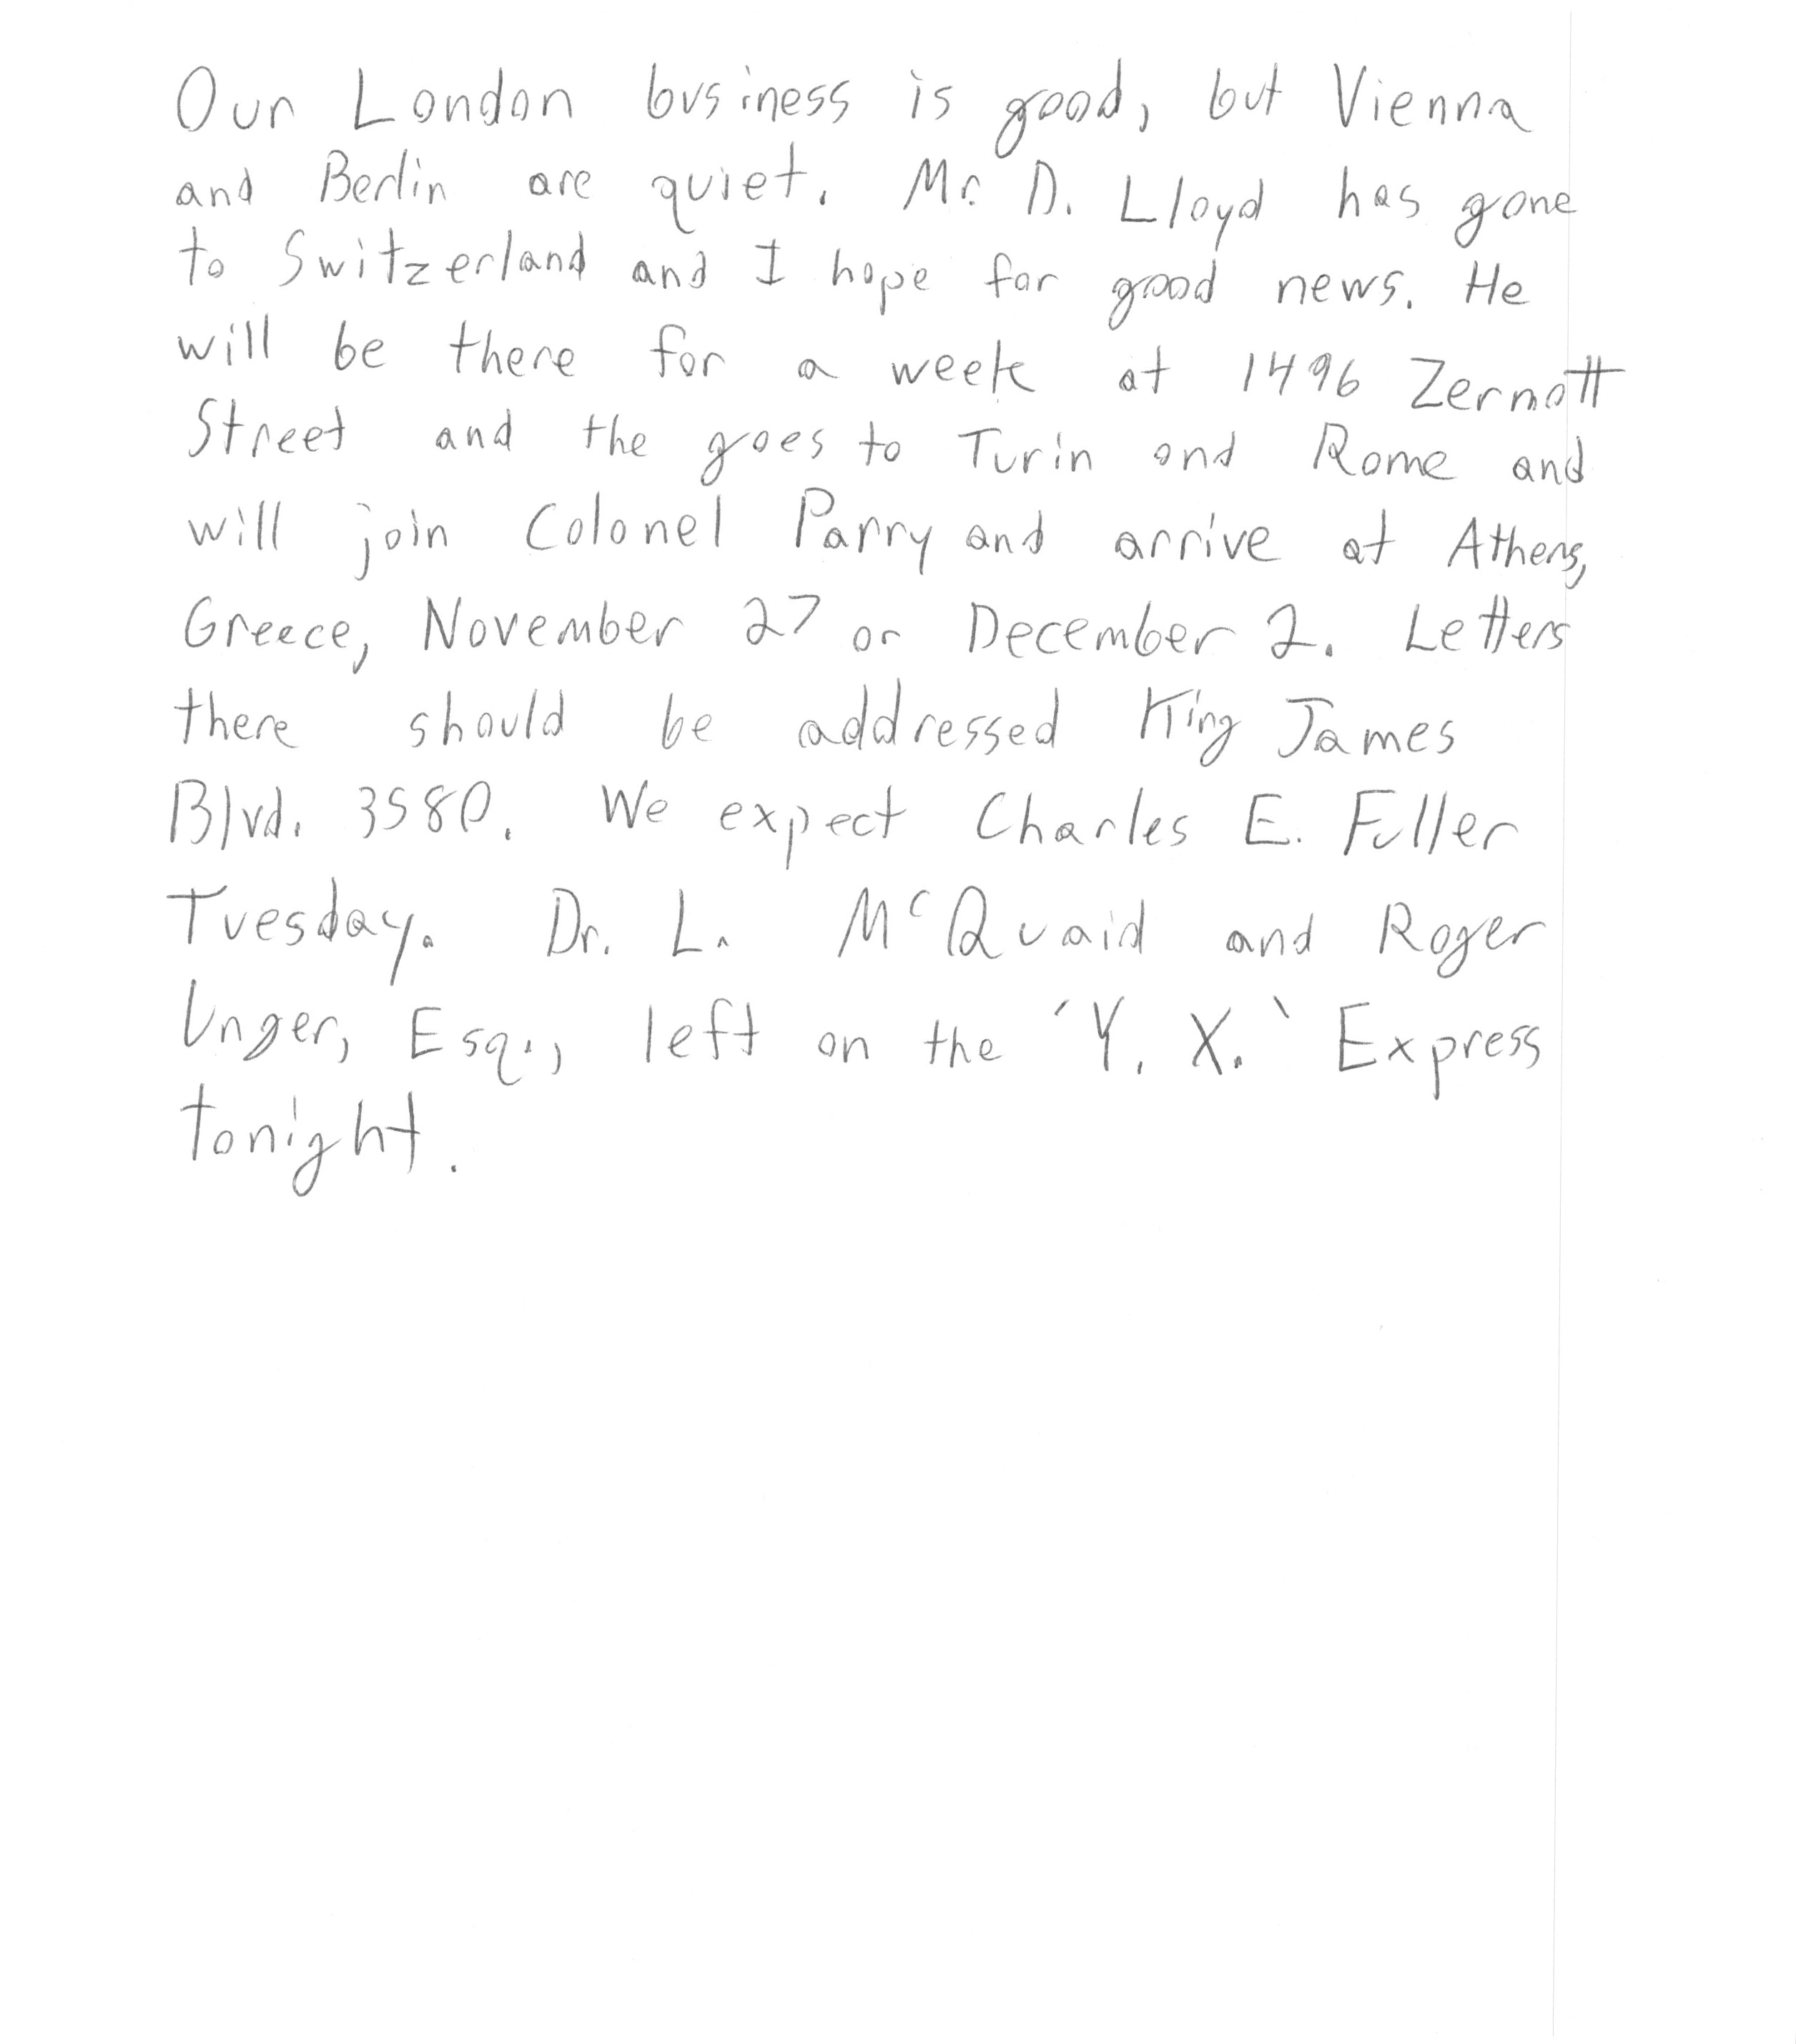 Our London business is good, but Vienna
and Berlin are quiet. Mr. D. Lloyd has gone
to Switzerland and I hope for good news. He
will be there for a week at 1496 Zermott
Street and the goes to Turin and Rome and
will join Colonel Parry and arrive at Athens,
Greece, November 27 or December 2. Letters
there should be addressed King James
Blvd. 3580. We expect Charles E. Fuller
Tuesday. Dr. L. McQuaid and Roger
Unger, Esq., left on the 'Y. X.' Express
tonight.